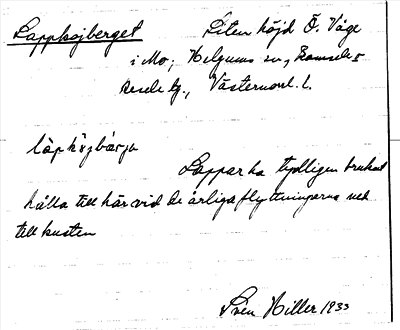 Lappkojberget Liten höjd Ö. Våge
i Mo; Helgums sn, Ramsele o
Resele tg., Västernorrl. l.
Lappar ha tydligen brukat
hålla till här vid de årliga flyttningarna ned
till kusten
Sven Hiller 1933